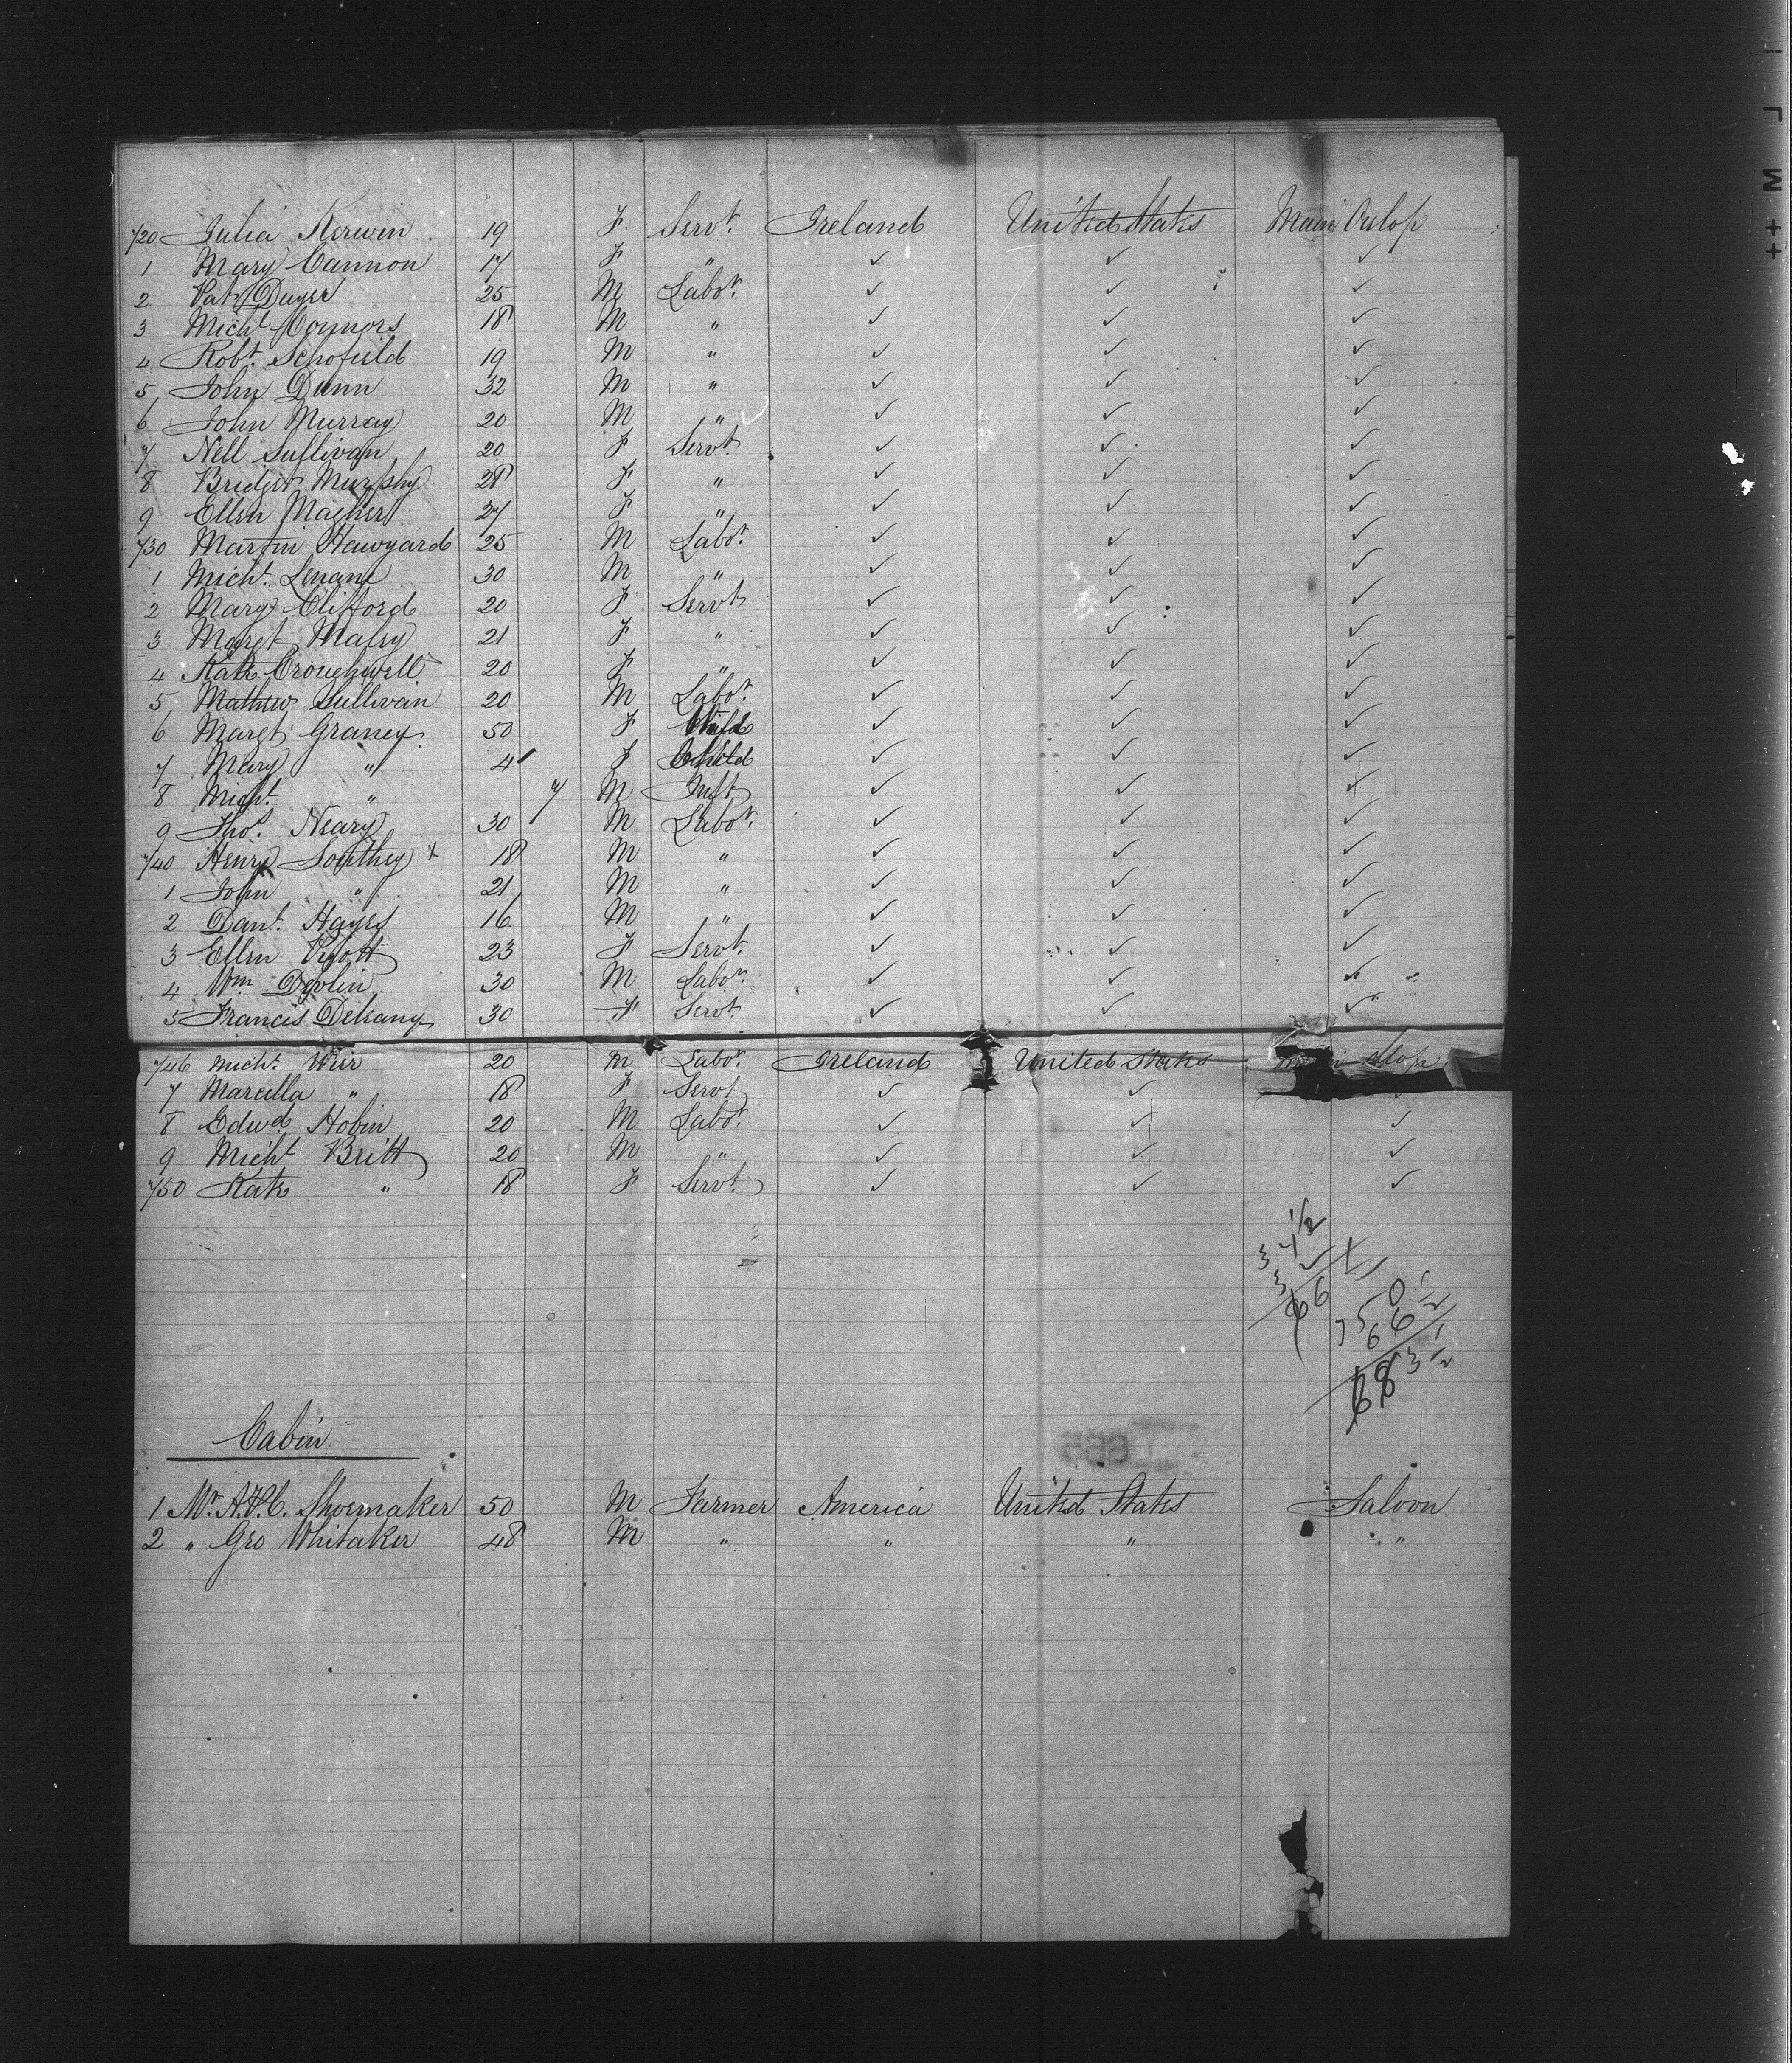 720 Julia Kerwin 19 F Servt. Ireland United States Main Orlop
1 Mary Cannon 17 F " ✓ ✓ ✓
2 Pat Dwyer 25 M Labor. ✓ ✓ ✓
3 Michl Connors 18 M " ✓ ✓ ✓
4 Robt. Schofield 19 M " ✓ ✓ ✓
5 John Dunn 32 M " ✓ ✓ ✓
6 John Murray 20 M " ✓ ✓ ✓
7 Nell Sullivan 20 F Servt. ✓ ✓ ✓
8 Bridget Murphy 28 F " ✓ ✓ ✓
9 Ellen Magher 27 F " ✓ ✓ ✓
730 Martin 25 M Labor. ✓ ✓ ✓
1 Michl. Lenane 30 M " ✓ ✓ ✓
2 Mary Clifford 20 F Servt ✓ ✓ ✓
3 Margt 21 F " ✓ ✓ ✓
4 Kate Croughwell 20 F " ✓ ✓ ✓
5 Mathew Sullivan 20 M Labor. ✓ ✓ ✓
6 Margt Graney 50 F Wife ✓ ✓ ✓
7 Mary " 4 F Child ✓ ✓ ✓
8 Michl. " 7 M Inft ✓ ✓ ✓
9 Thos. Neary 30 M Labor. ✓ ✓ ✓
740 Henry Southey x 18 M " ✓ ✓ ✓
1 John " 21 M " ✓ ✓ ✓
2 Danl. Hayes 16 M " ✓ ✓ ✓
3 Ellen Pigott 23 F Servt. ✓ ✓ ✓
4 Wm Devlin 30 M Labor. ✓ ✓ ✓
5 Francis Delany 30 F Servt. ✓ ✓ ✓
746 Michl. Weir 20 M Labor. Ireland United States Orlop
7 Marcella " 18 F Servt ✓ ✓ ✓
8 Edwd. Hobin 20 M Labor. ✓ ✓ ✓
9 Michl Britt 20 M " ✓ ✓ ✓
750 Kate " 18 F Servt. ✓ ✓ ✓
34 1/2
32
66
750
66 1/2
683 1/2
Cabin
1 Mr. A.H.C. Shoemaker 50 M Farmer America United States Saloon
2 " Geo Whitaker 48 M " " " "